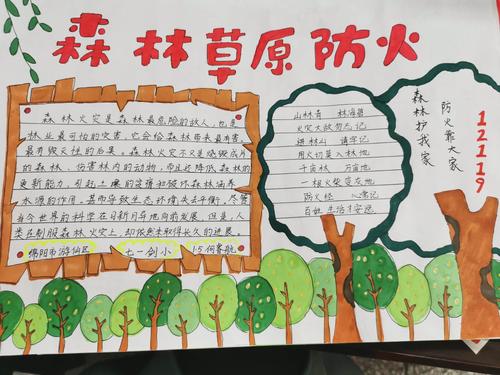 森林草原防火
森林火灾是森林最危险的敌人，也是
林业最可怕的灾害，它会给森林带来最有害，
最有毁灭性的后果。森林火灾不只是烧毁成片
的森林，伤害林内的动物，而且还降低森林的
更新能力，引起土壤的贫瘠和破坏森林涵养
水源的作用，甚而导致生态环境失去平衡，尽管
当今世界的科学在日新月异地向前发展，但是，人
类在制服森林火灾上，却依然未取得长久的进展。
绵阳市游仙区 七一剑小
山林青 林海碧
火灾大敌勿忘记
进林山 请牢记
用火切莫入林地
千亩林 万亩地
一根火柴变灰地
防火经 心常记
百姓生活才安逸
森林护我家
防火靠大家
12119